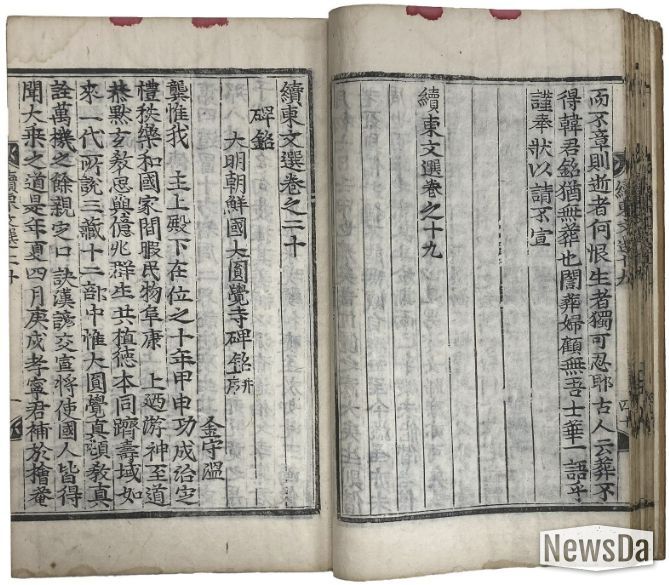 續東文選十九
而不章則逝者何恨生者獨可忍耶古人云葬不
得韓君銘猶無葬也闇葬婦顧無吾士華一語乎
謹奉狀以請不宣
續東文選卷之十九
續東文選卷之二十
碑銘
大明朝鮮國大圓覺寺碑銘并序
金守溫
龔惟我 主上殿下在位之十年甲申功成治定
禮秩樂和國家閒暇民物阜康 上迺游神至道
恭默玄教思與億兆群生共植德本同躋壽域如
來一代所說三藏十二部中惟大圓覺真頓教真
詮萬機之餘親定口訣漢諺交宣將使國人皆得
聞大乘之道是年夏四月庚戌孝寧君補於檜菴
NewsDa